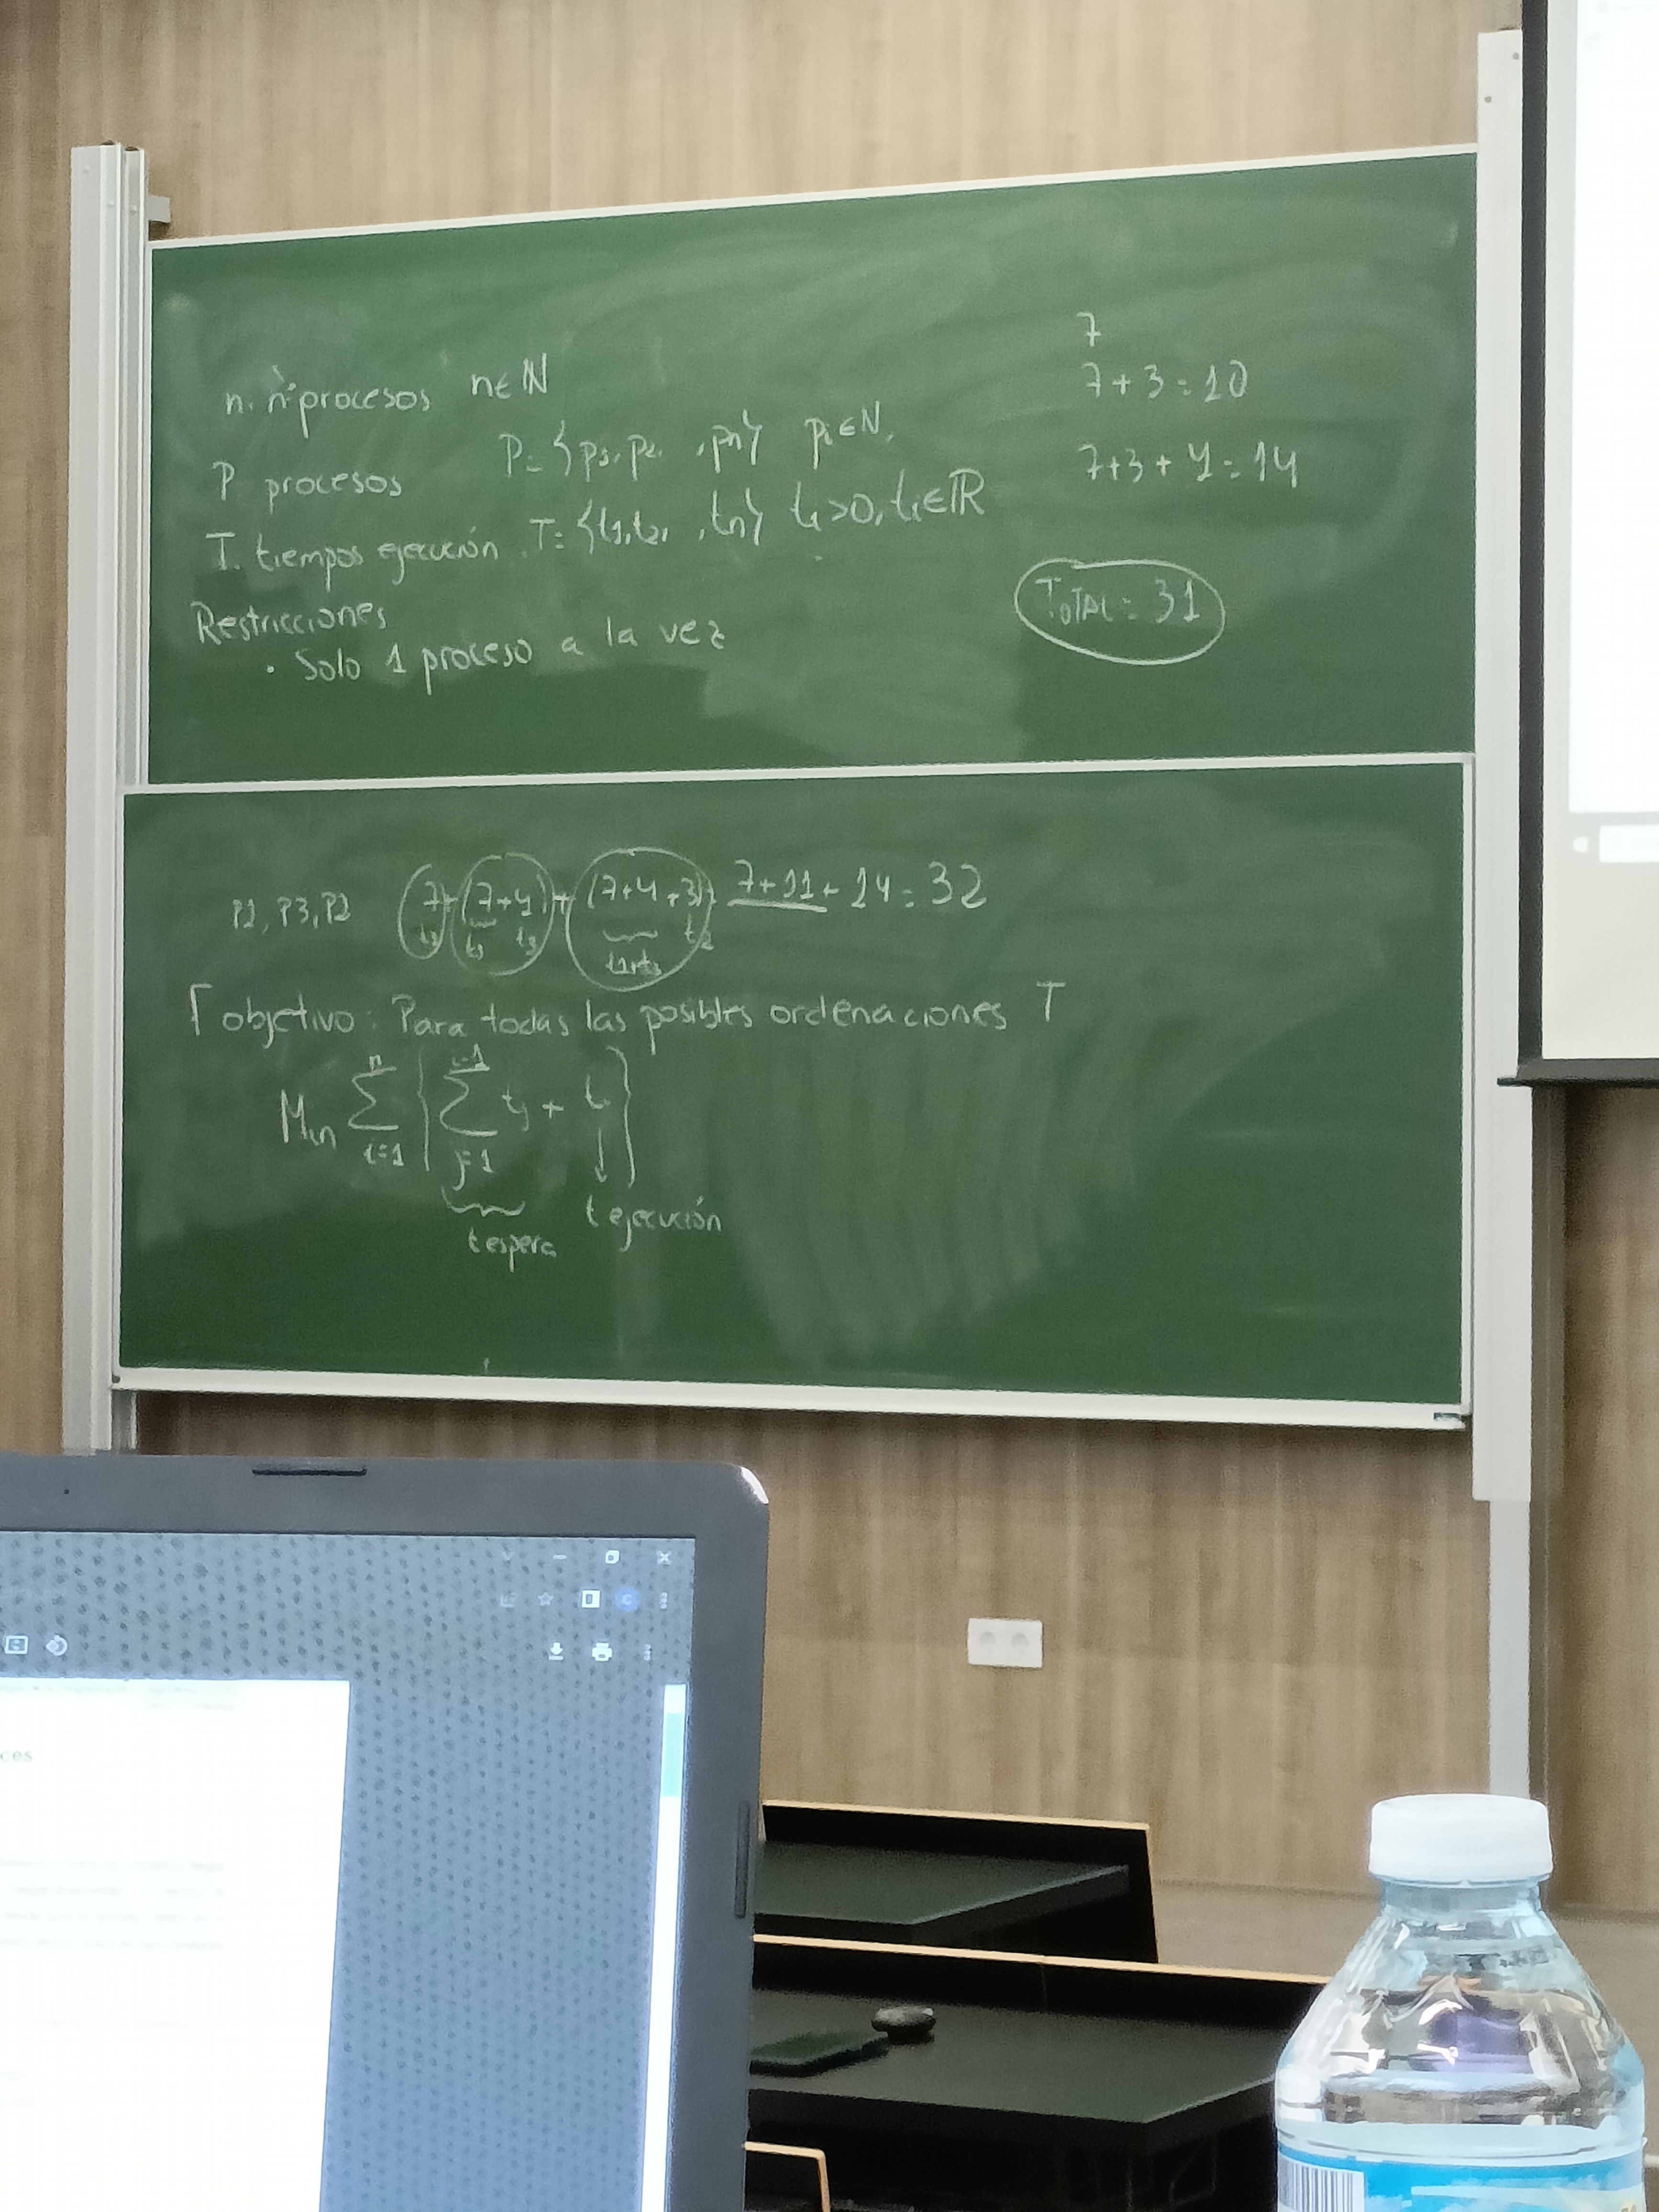 n. nº procesos n∈ℕ
P procesos P={p1, p2, , pn} pi∈N,
T. tiempos ejecución. T={t1, t2, , tn} ti>0, ti∈ℝ
Restricciones
• Solo 1 proceso a la vez
7
7+3=10
7+3+4=14
TOTAL=31
P1, P3, P2 7+(7+4)+(7+4+3)= 7+11+14=32
t1 t3 t2
t1+t3
F objetivo: Para todas las posibles ordenaciones T
Min ∑ i=1 n { ∑ j=1 i-1 tj + ti }
t espera
t ejecución
ces